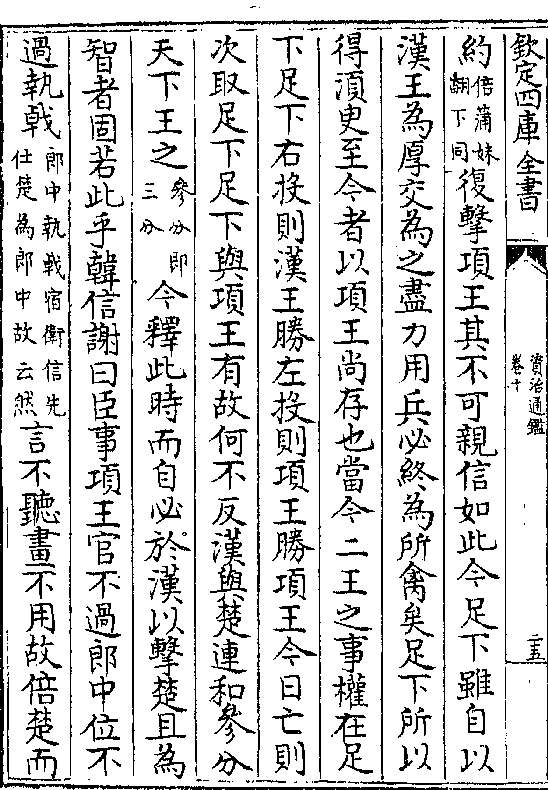 欽定四庫全書
資治通鑑
卷十
二五
約倍蒲妹翻下同復擊項王其不可親信如此今足下雖自以
漢王為厚交為之盡力用兵必終為所禽矣足下所以
得湏臾至今者以項王尚存也當今二王之事權在足
下足下右投則漢王勝左投則項王勝項王今日亡則
次取足下足下與項王有故何不反漢與楚連和參分
天下王之參分即三分今釋此時而自必於漢以擊楚且為
智者固若此乎韓信謝曰臣事項王官不過郎中位不
過執戟郎中執戟宿衛信先仕楚為郎中故云然言不聽畫不用故倍楚而